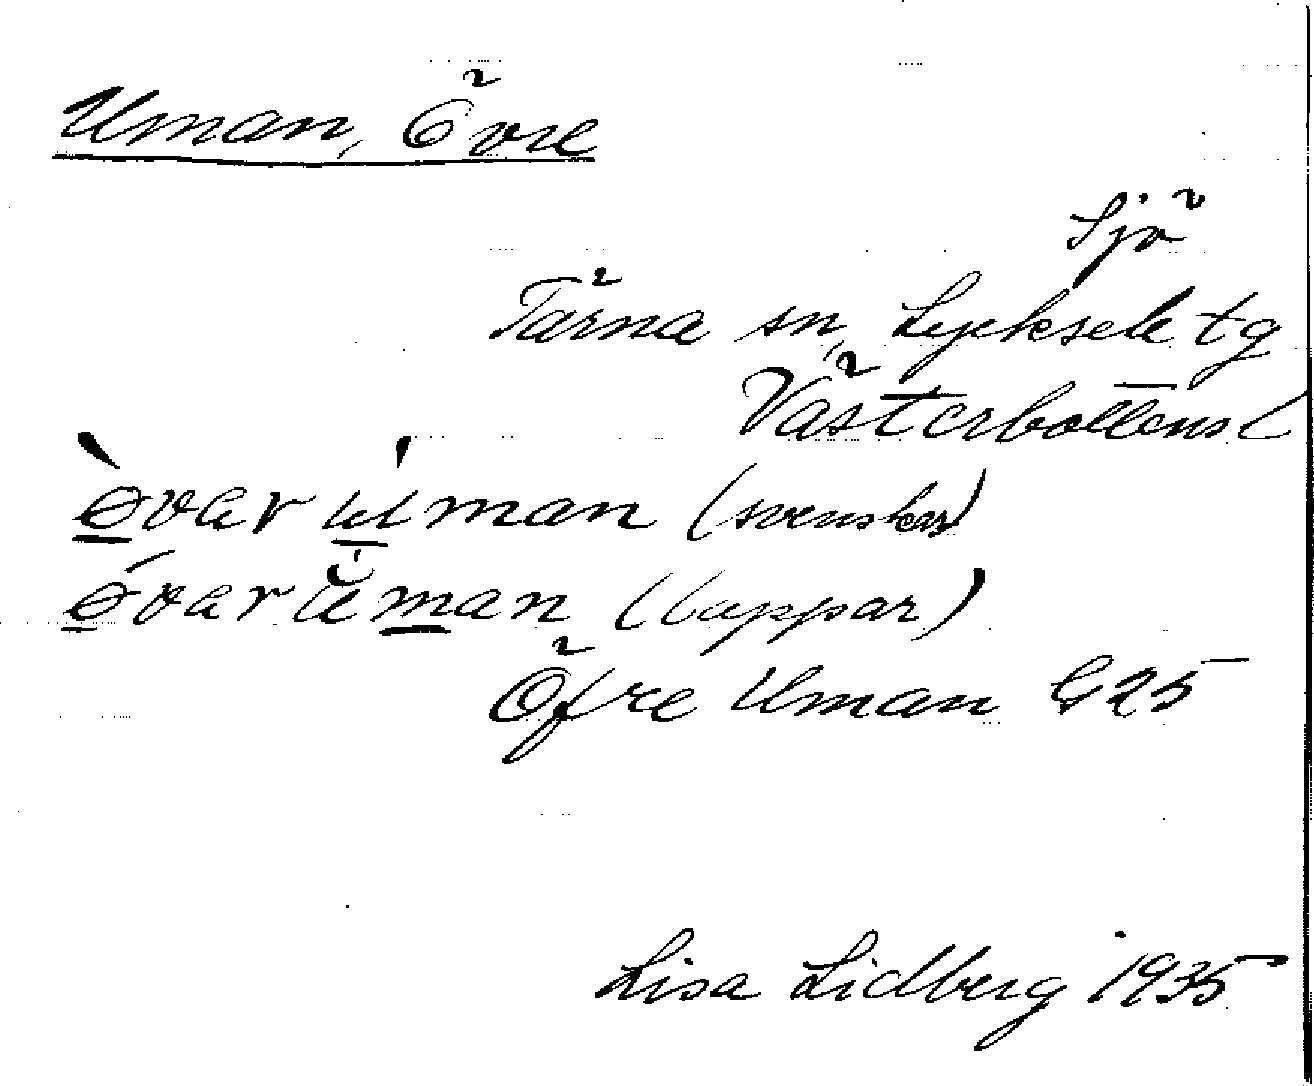 Uman, Övre
Sjö
Tärna sn, Lycksele tg
Västerbottens l
ɵ̱̀var ʉ̱́man (svenskar)
ɵ̱́varʉ̆m̱an (lappar)
Öfre Uman G25
Lisa Lidberg 1935